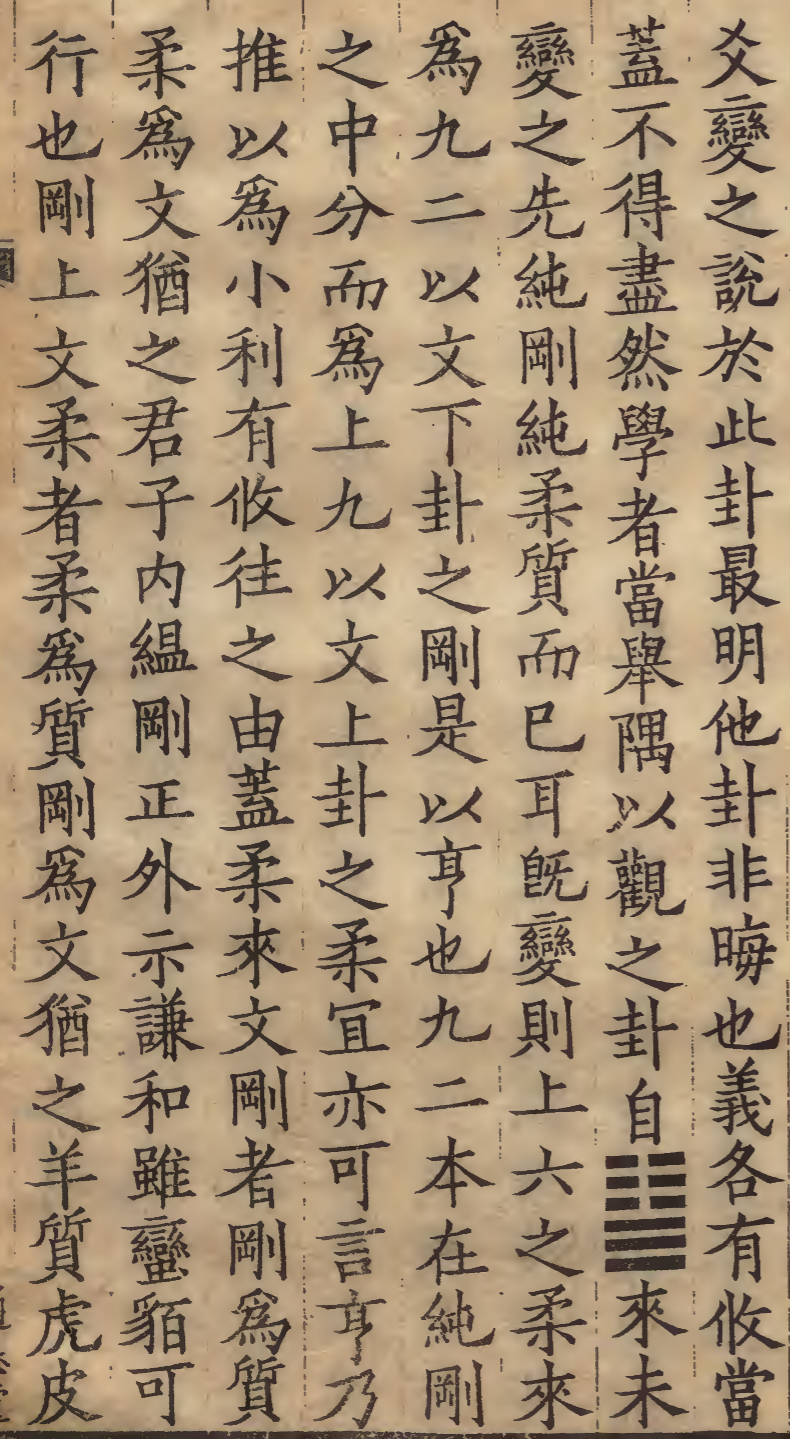 爻變之說於此卦最明他卦非晦也義各有攸當
蓋不得盡然學者當舉隅以觀之卦自䷊來未
變之先純剛純柔質而已耳旣變則上六之柔來
爲九二以文下卦之剛是以亨也九二本在純剛
之中分而爲上九以文上卦之柔宜亦可言亨乃
推以爲小利有攸往之由蓋柔來文剛者剛爲質
柔爲文猶之君子内緼剛正外示謙和雖蠻貊可
行也剛上文柔者柔爲質剛爲文猶之羊質虎皮